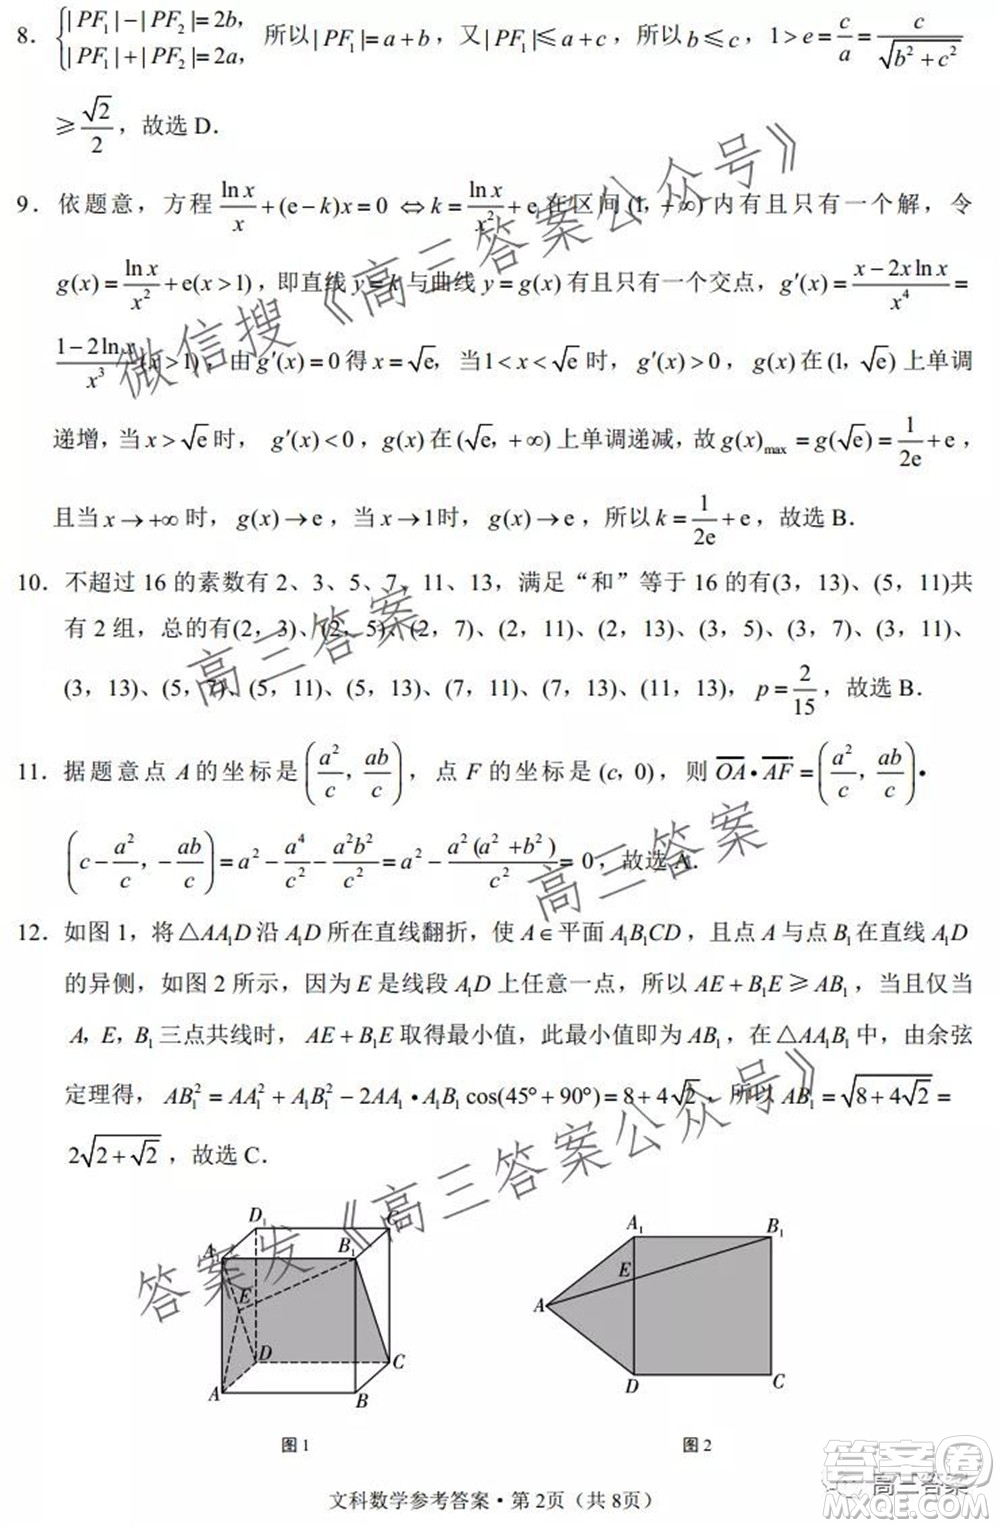 8. {|PF₁|−|PF₂|=2b, |PF₁|+|PF₂|=2a, 所以|PF₁|=a+b，又|PF₁|≤a+c，所以b≤c，1>e=c/a=c/√(b²+c²)
≥√2/2，故选 D．
9．依题意，方程 ln x/x+(e−k)x=0 ⇔ k=ln x/x²+e 在区间(1，+∞)内有且只有一个解，令
g(x)=ln x/x²+e(x>1)，即直线 y=k 与曲线 y=g(x) 有且只有一个交点，g′(x)=(x−2x ln x)/x⁴=
(1−2ln x)/x³(x>1)，由 g′(x)=0 得 x=√e，当1<x<√e 时，g′(x)>0，g(x)在(1，√e)上单调
递增，当 x>√e 时，g′(x)<0，g(x)在(√e，+∞)上单调递减，故 g(x)max=g(√e)=1/2e+e，
且当 x→+∞ 时，g(x)→e，当 x→1时，g(x)→e，所以 k=1/2e+e，故选 B．
10．不超过 16 的素数有 2、3、5、7、11、13，满足“和”等于 16 的有(3，13)、(5，11)共
有 2 组，总的有(2，3)、(2，5)、(2，7)、(2，11)、(2，13)、(3，5)、(3，7)、(3，11)、
(3，13)、(5，7)、(5，11)、(5，13)、(7，11)、(7，13)、(11，13)，p=2/15，故选 B．
11．据题意点 A 的坐标是(a²/c，ab/c)，点 F 的坐标是(c，0)，则 OA•AF=(a²/c，ab/c)•
(c−a²/c，−ab/c)=a²−a⁴/c²−a²b²/c²=a²−a²(a²+b²)/c²=0，故选 A．
12．如图 1，将△AA₁D沿 A₁D 所在直线翻折，使 A∈平面A₁B₁CD，且点 A 与点 B₁在直线 A₁D
的异侧，如图 2 所示，因为 E 是线段 A₁D 上任意一点，所以 AE+B₁E≥AB₁，当且仅当
A，E，B₁三点共线时，AE+B₁E 取得最小值，此最小值即为 AB₁，在△AA₁B₁中，由余弦
定理得，AB₁²=AA₁²+A₁B₁²−2AA₁•A₁B₁cos(45°+90°)=8+4√2，所以 AB₁=√(8+4√2)=
2√(2+√2)，故选 C．
D₁ C₁
A₁ B₁
E
D C
A B
图 1
A₁ B₁
E
A
D C
图 2
文科数学参考答案·第 2页（共 8页）
微信搜《高三答案公众号》
高三答案
高三答案
答案发《高三答案公众号》
高三答案
答案圈
MXQE.COM